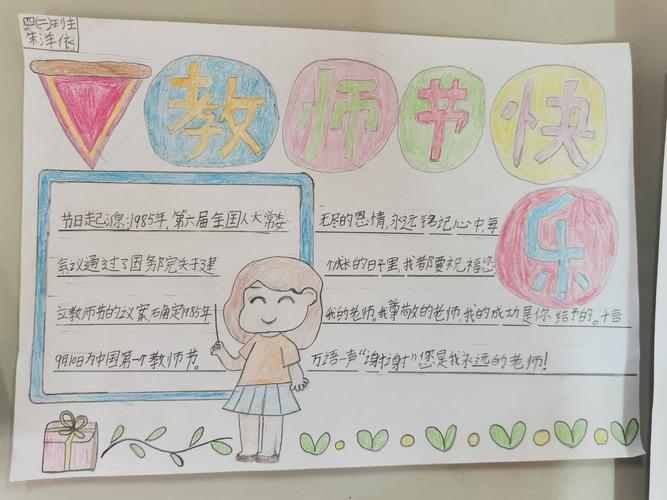 四(二)班
朱洋依
教师节快
乐
节日起源:1985年,第六届全国人大常委
会议通过了国务院关于建
立教师节的议案,确定1985年
9月10日为中国第一个教师节。
无尽的恩情,永远铭记心中,每
个成长的日子里,我都要祝福您
我的老师。我尊敬的老师,我的成功是你给予的。千言
万语一声“谢谢”您是我永远的老师!